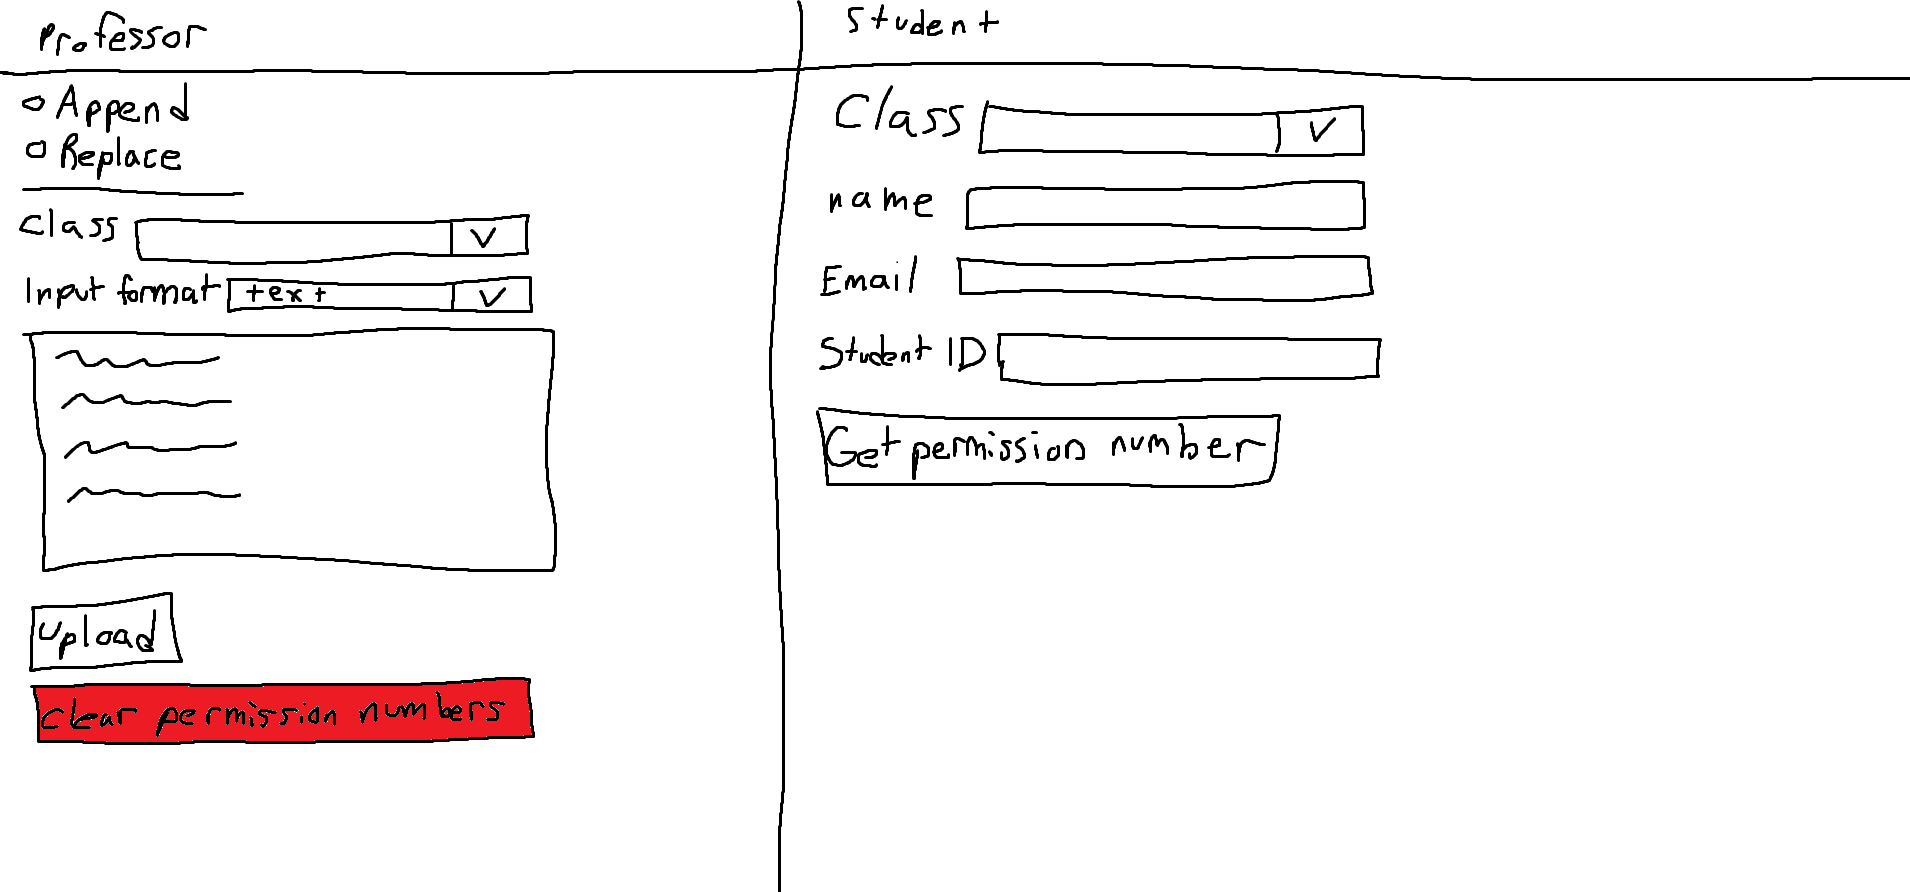 Professor
Append
Replace
Class
Input format text
Upload
Clear permission numbers
Student
Class
name
Email
Student ID
Get permission number